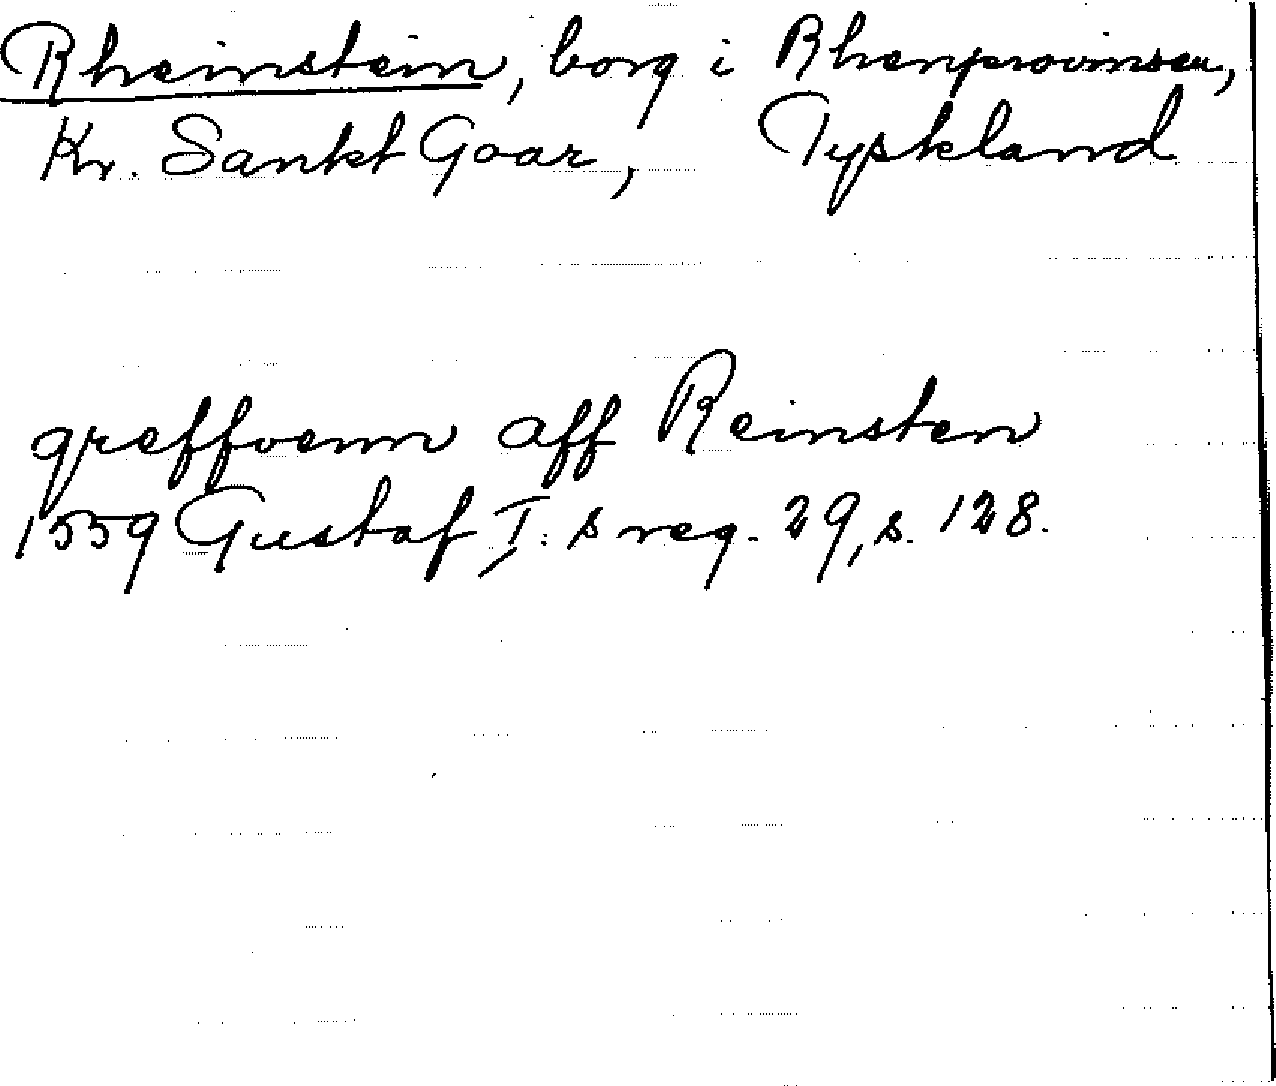 Rheinstein, borg i Rhenprovinsen,
Kr. Sankt Goar, Tyskland
greffvenn aff Reinsten
1559 Gustaf I:s reg. 29, s. 128.